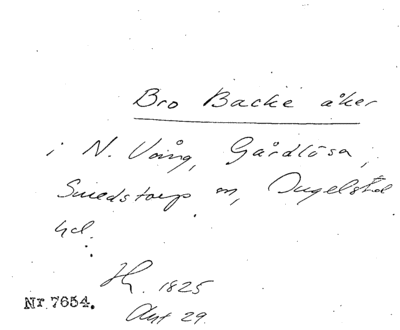 Bro Backe åker
i N. Vång, Gårdlösa,
Smedstorp sn, Ingelstad
hd.
Hy. 1825
Akt 29.
Nr 7654.